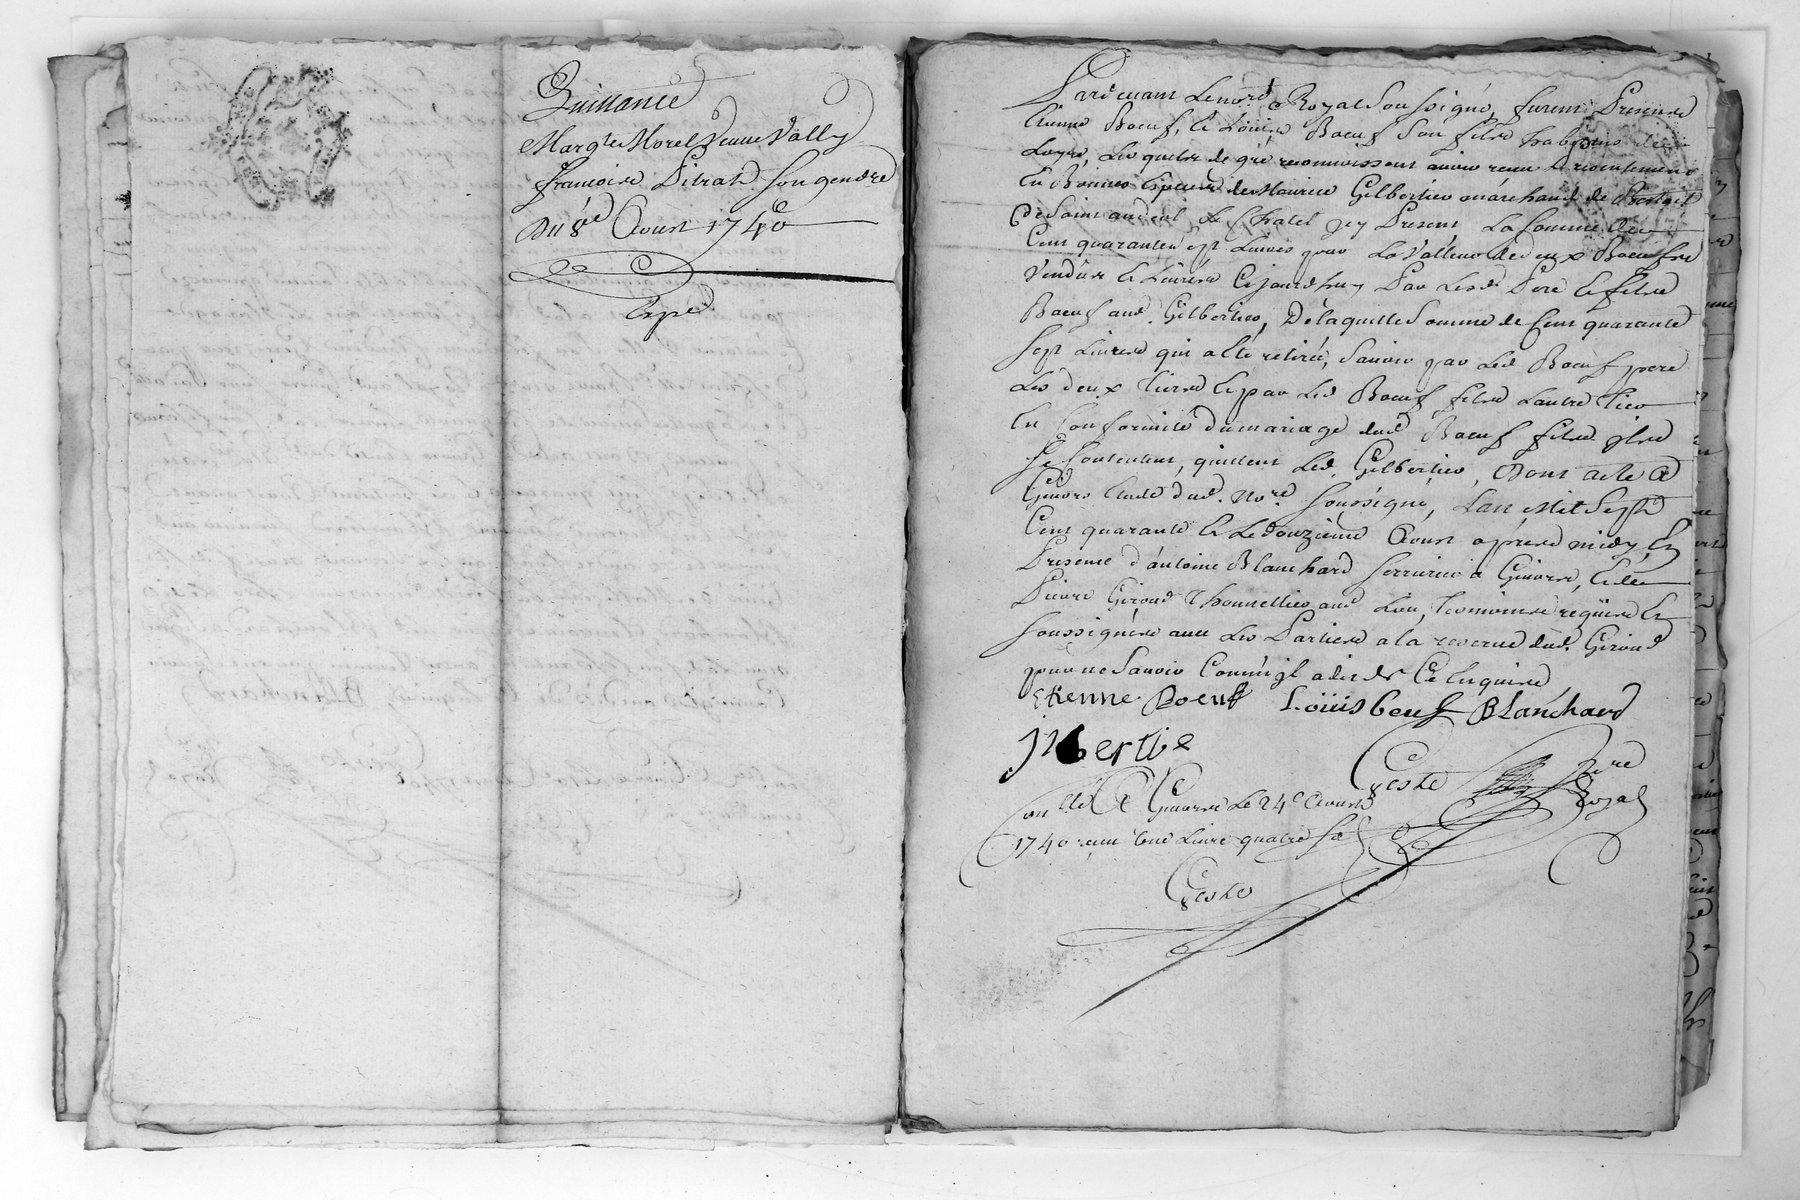 Quittance
Margte Morel Veuve Vally
françoise Pitrat son gendre
Du 8e Aoust 1740
Expé
Pardevant Le nore Royal Soussigné, furent Presents
Etienne Boeuf, et Loüis Boeuf Son fils habitans de
Loyre, Lesquels de gré reconnoissent avoir receu Presentement
En Bonnes Especes de Maurice Gilbertier marchand de
de Saint andeol Le Chatel icy Present La Somme de
Cent quarante sept Livres pour La Valleur de deux Boeufs
Vendus et Livrés Cejourdhuy Par Lesd Pere et fils
Boeuf aud. Gilbertier, De laquelle Somme de Cent quarante
Sept Livres qui a été retirée, Sçavoir par Led Boeuf pere
Les deux tiers et par Led Boeuf fils Lautre tier
En Conformité du mariage dud Boeuf fils ils
Se Contentent, quittent Led Gilbertier, Dont acte a
Givors Etude dud. Nore Soussigné, L'an Mil Sept
Cent quarante et Le douzieme Aoust apres midy, En
Presence d'antoine Blanchard Serrurier a Givors, et de
Pierre Giroud Thonnellier aud Lieu, temoins requis et
Soussignés avec Les Parties a la reserve dud. Giroud
pour ne Sçavoir Comm'il a dit de Ce Enquis
Etienne Boeuf Loüis beuf Blanchard
jilbertie
Geste Nore Royal
Conllé a Givors Le 24e Aoust
1740 receu une Livre quatre Sols
Geste